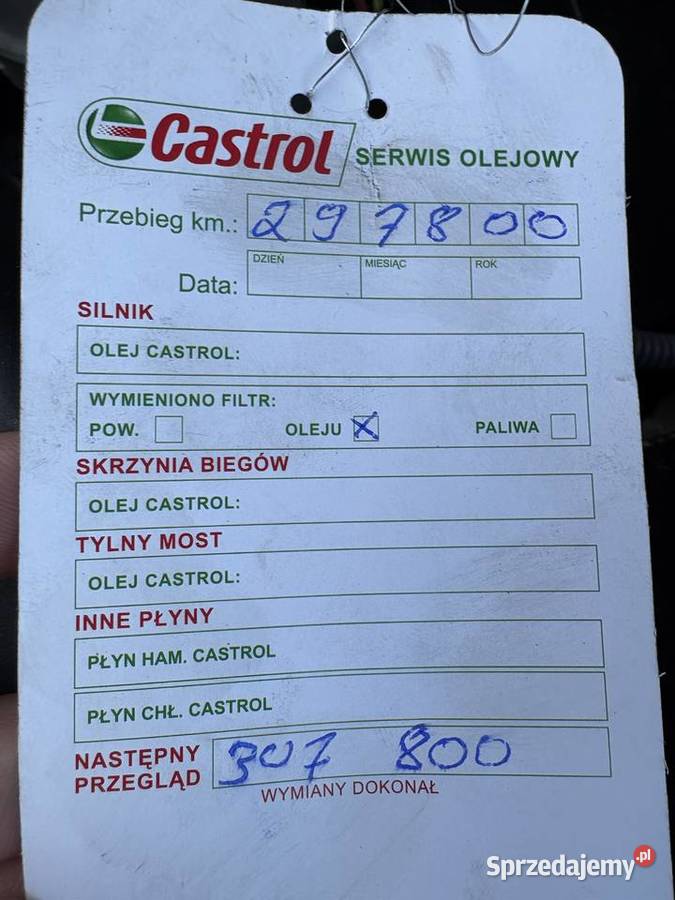 Castrol SERWIS OLEJOWY
Przebieg km.: 297800
DZIEŃ MIESIĄC ROK
Data:
SILNIK
OLEJ CASTROL:
WYMIENIONO FILTR:
POW. OLEJU X PALIWA
SKRZYNIA BIEGÓW
OLEJ CASTROL:
TYLNY MOST
OLEJ CASTROL:
INNE PŁYNY
PŁYN HAM. CASTROL
PŁYN CHŁ. CASTROL
NASTĘPNY
PRZEGLĄD 307 800
WYMIANY DOKONAŁ
Sprzedajemy.pl